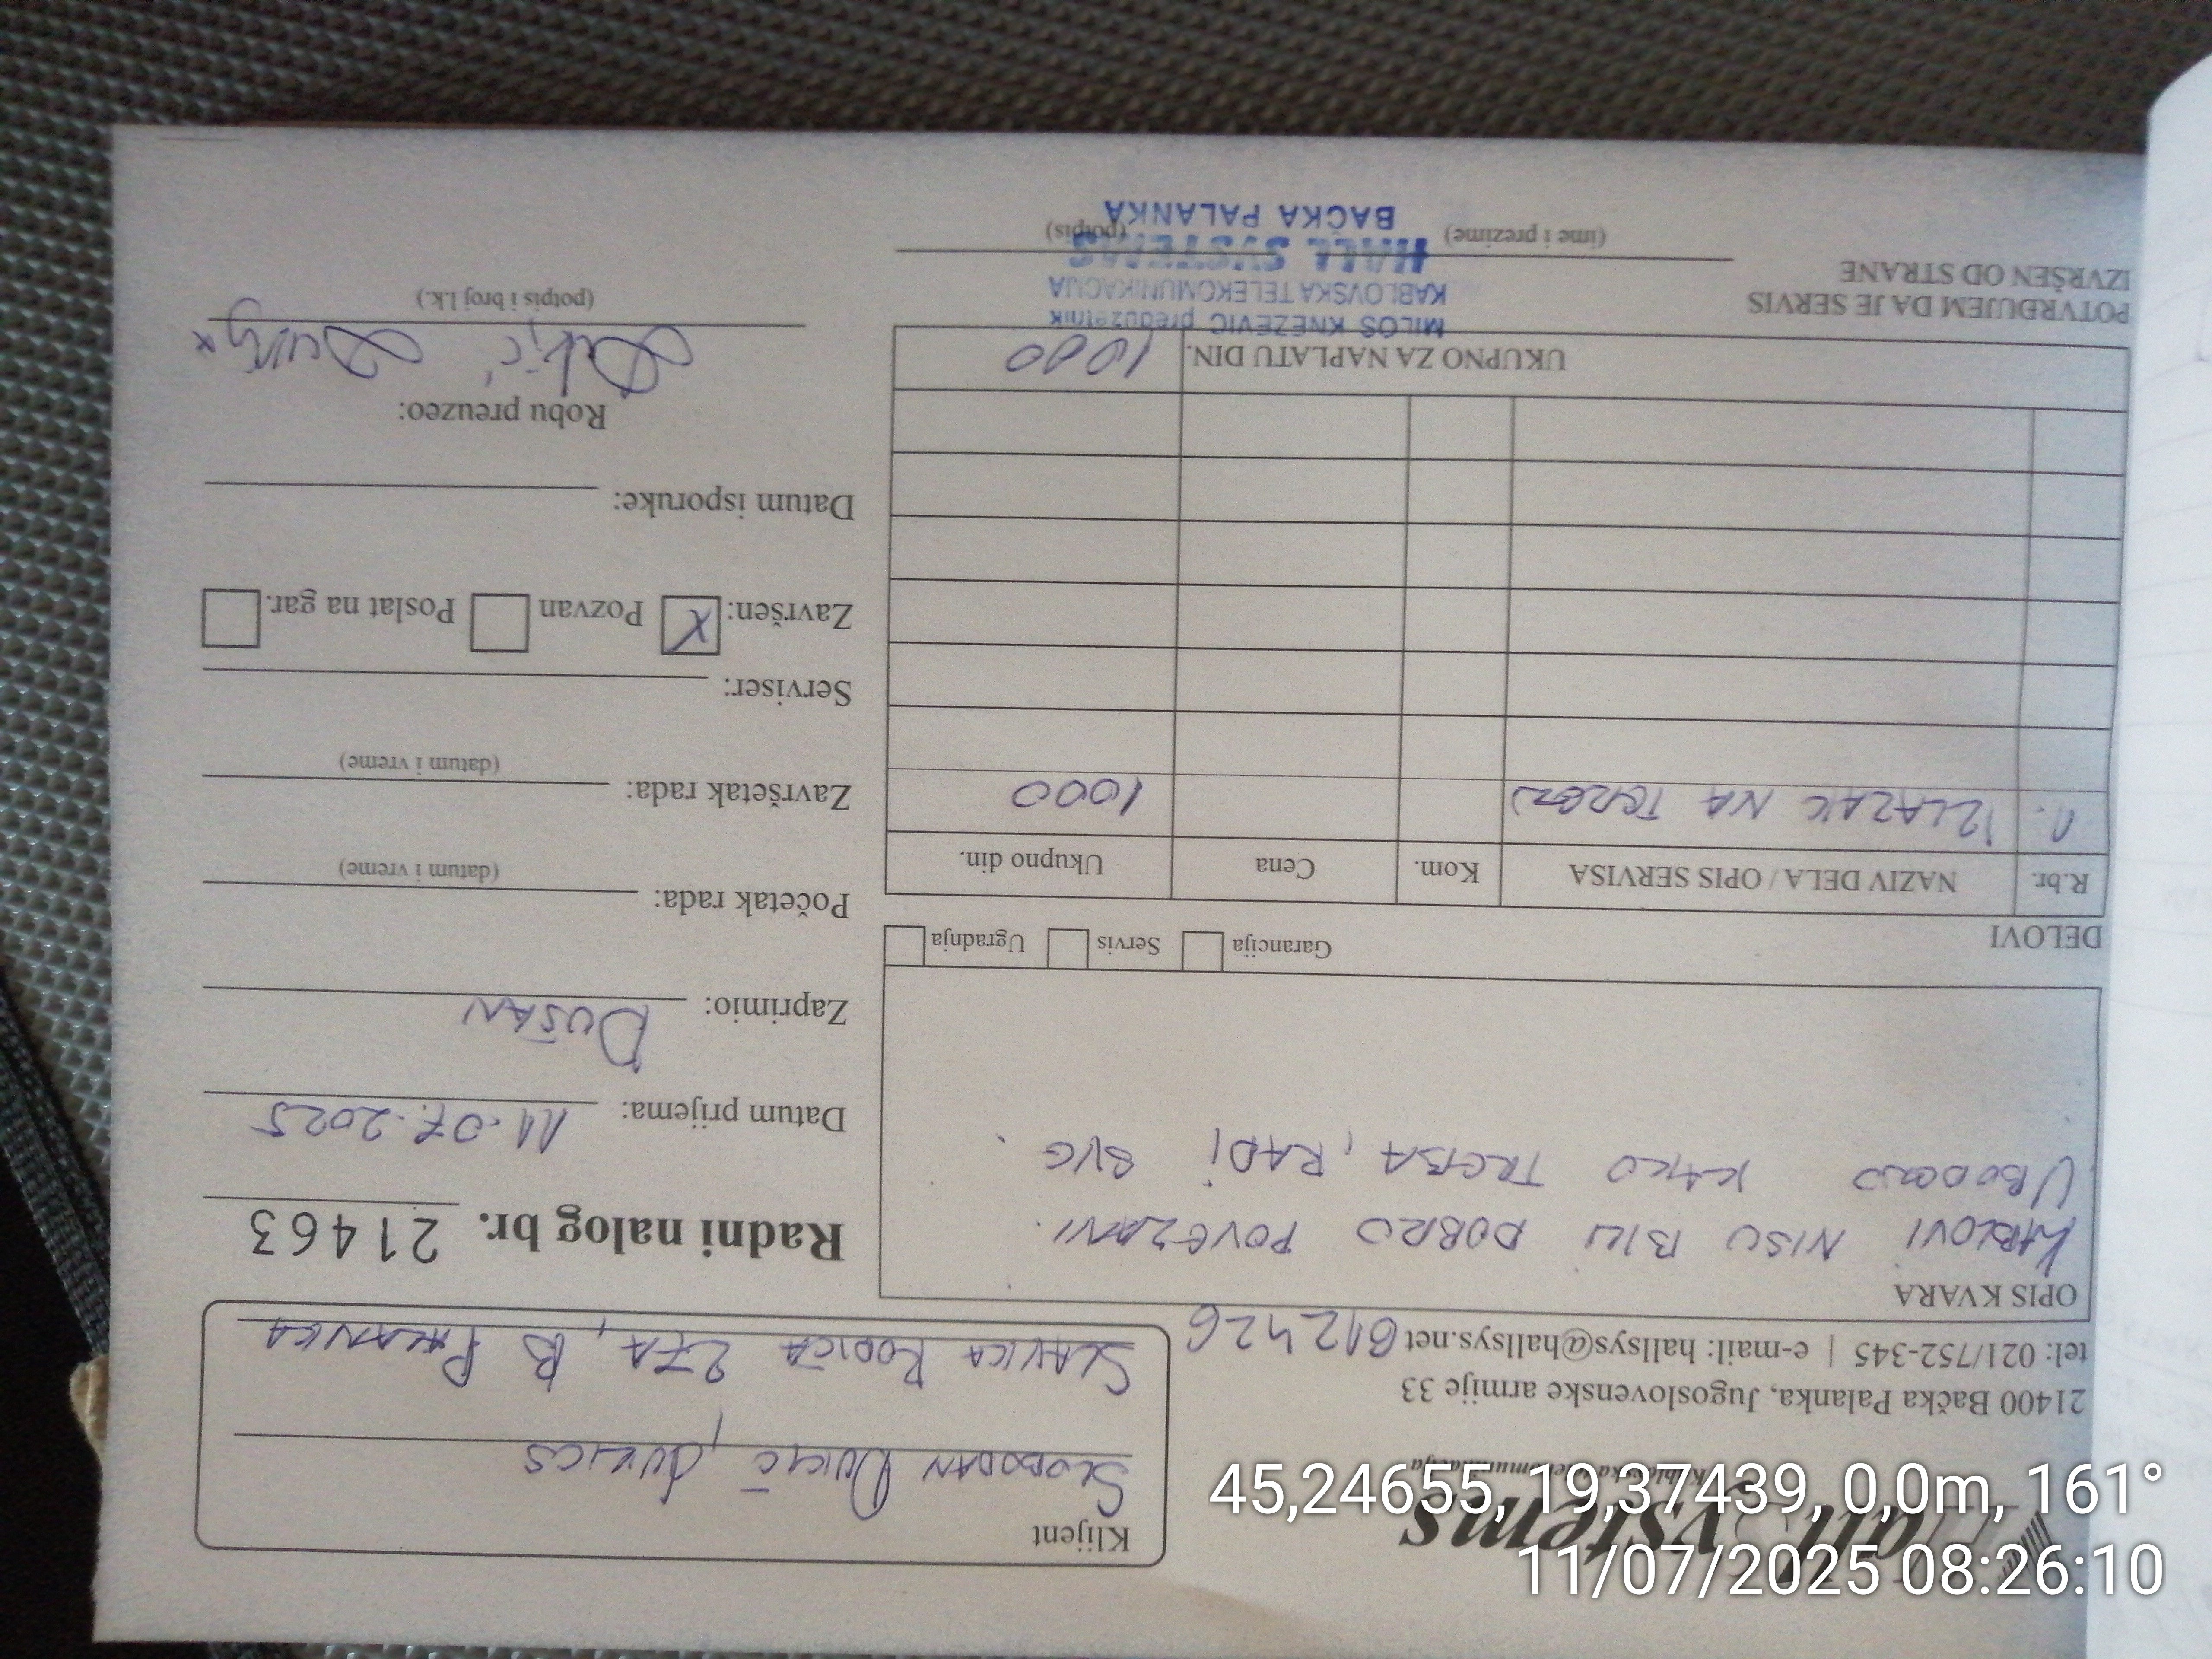 Hall Systems
Kablovska telekomunikacija
21400 Bačka Palanka, Jugoslovenske armije 33
tel: 021/752-345 | e-mail: hallsys@hallsys.net 612426
Klijent
SLOBODAN
SLAVKA RODIĆA 27A, B PALANKA
OPIS KVARA
KABLOVI NISU BILI DOBRO POVEZANI.
UBODENO KAKO TREBA, RADI SVE.
Radni nalog br. 21463
Datum prijema: 11.07.2025
Zaprimio: DUŠAN
Početak rada:
(datum i vreme)
Završetak rada:
(datum i vreme)
Serviser:
Završen: X Pozvan Poslat na gar.
Datum isporuke:
Robu preuzeo:
(potpis i broj l.k.)
DELOVI Garancija Servis Ugradnja
R.br. NAZIV DELA / OPIS SERVISA Kom. Cena Ukupno din.
1. IZLAZAK NA TEREN 1000
UKUPNO ZA NAPLATU DIN. 1000
POTVRĐUJEM DA JE SERVIS
IZVRŠEN OD STRANE
(ime i prezime) (potpis)
MILOŠ KNEŽEVIĆ preduzetnik
KABLOVSKA TELEKOMUNIKACIJA
HALL SYSTEMS
BAČKA PALANKA
45,24655, 19,37439, 0,0m, 161°
11/07/2025 08:26:10